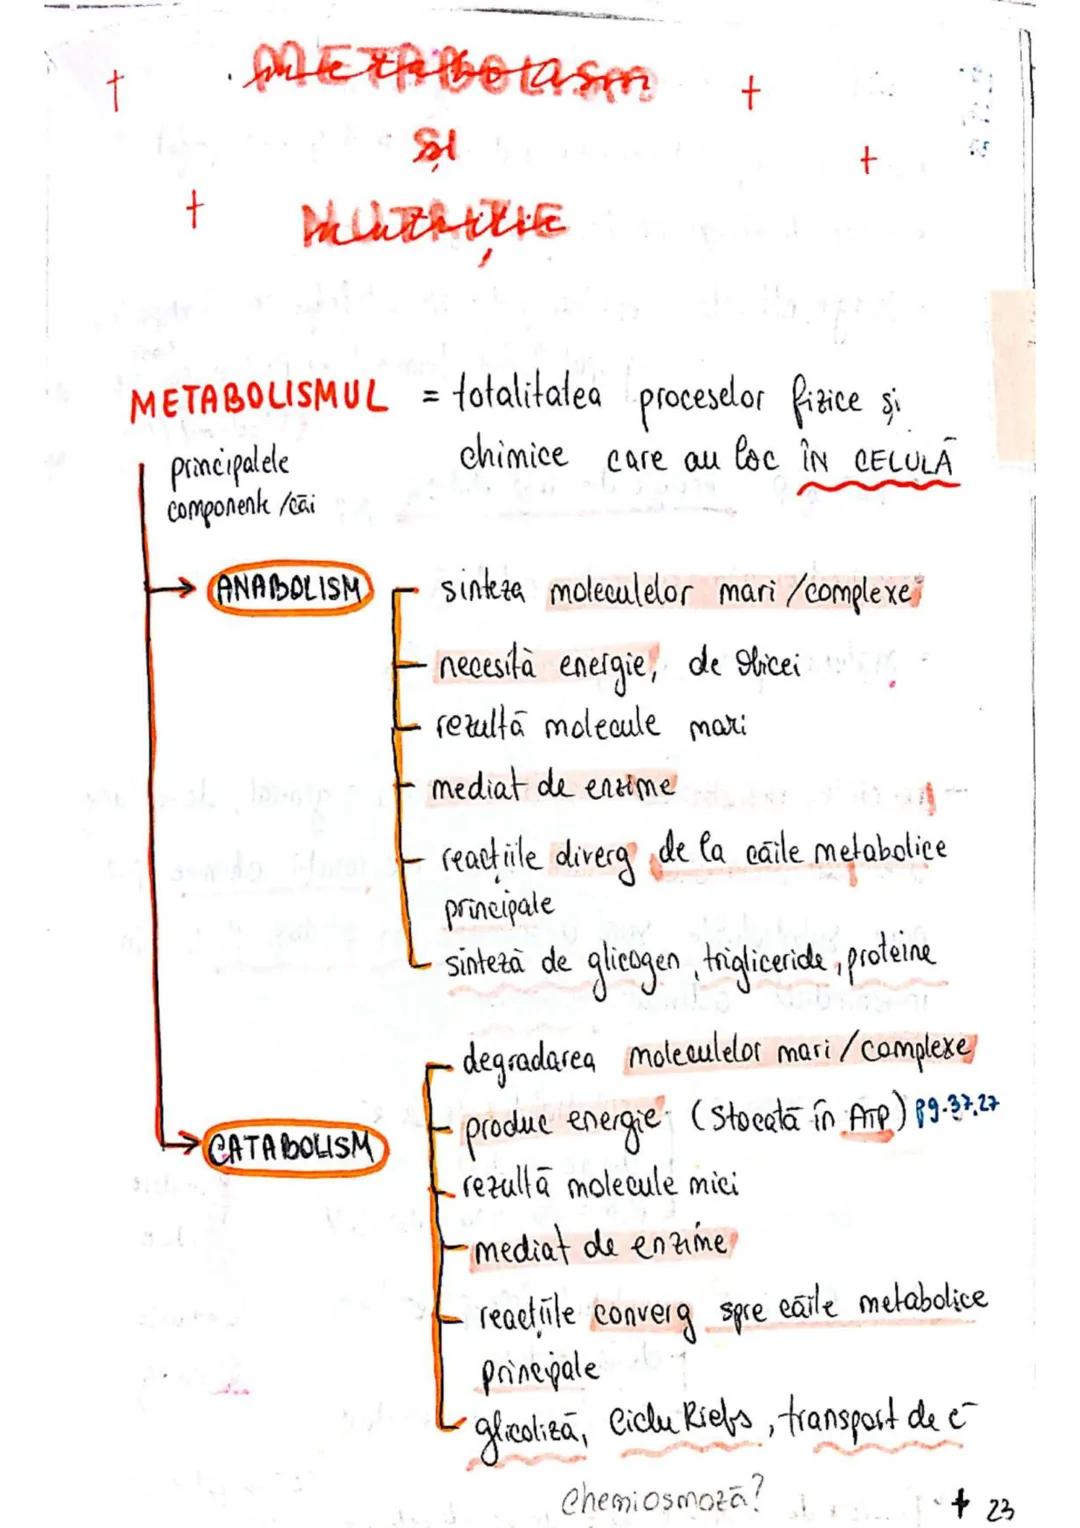 METABOLISM
ȘI
NUTRIȚIE
METABOLISMUL = totalitatea proceselor fizice și
chimice care au loc ÎN CELULĂ
principalele
componente /căi
ANABOLISM
sinteza moleculelor mari /complexe
necesită energie, de obicei
rezultă molecule mari
mediat de enzime
reacțiile diverg de la căile metabolice
principale
sinteză de glicogen, trigliceride, proteine
CATABOLISM
degradarea moleculelor mari /complexe
produc energie (stocată în ATP) pg.37,27
rezultă molecule mici
mediat de enzime
reacțiile converg spre căile metabolice
principale
glicoliză, Ciclu Krebs, transport de e⁻
Chemiosmoză?
23